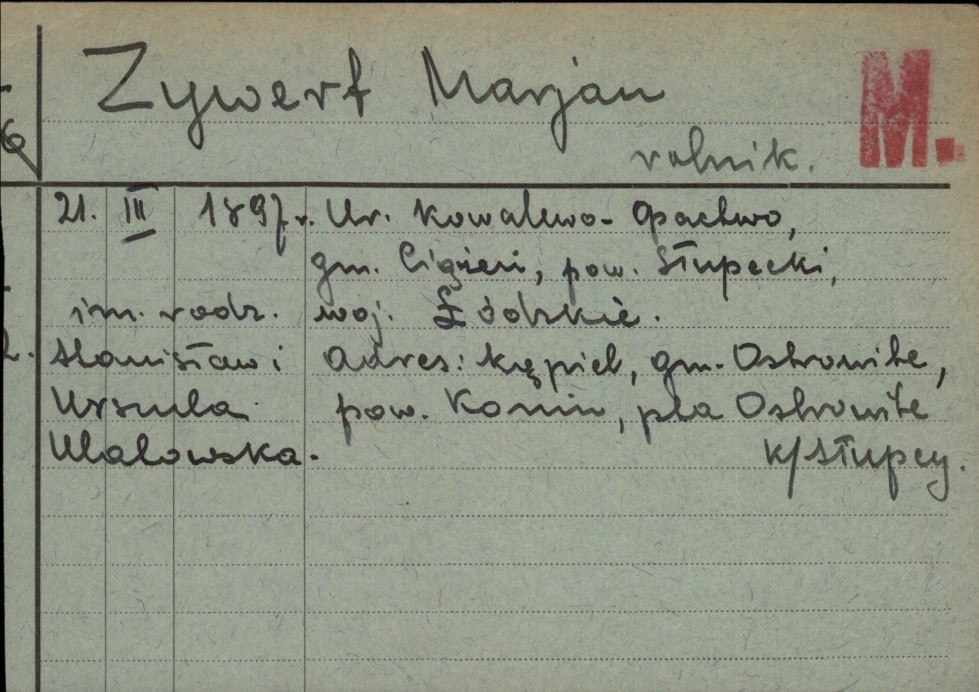 Zywert Marjan
M.
6
rolnik.
21. III 1897 r. Ur. Kowalewo-Opactwo,
gm. Ciążeń, pow. Słupecki,
im. rodz. woj. Łódzkie.
Stanisław i Adres: Kąpiel, gm. Ostrowite,
Urszula pow. Konin, pta Ostrowite
Ulatowska. k/Słupcy.